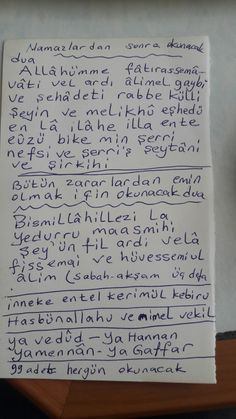 Namazlardan sonra okunacak
dua
Allâhümme fâtırassemâ-
vâti vel ardı âlimel gaybi
ve şehâdeti rabbe külli
şeyin ve melikhû eşhedü
en lâ ilâhe illa ente
eûzü bike min şerri
nefsi ve şerri's şeytâni
ve şirkihi
Bütün zararlardan emin
olmak için okunacak dua
Bismillâhillezi La
yedurru maasmihi
şey'ün fil ardi velâ
fissemai ve hüvessemiul
âlim (sabah-akşam üç defa
inneke entel kerimül kebiru
Hasbünallahu ve nimel vekil
ya vedûd - ya Hannan
yamennân - ya Gaffar
99 adet hergün okunacak